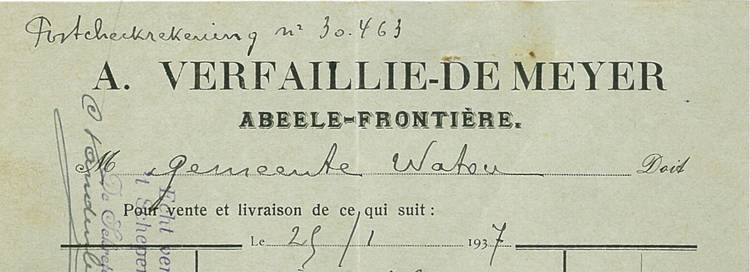 Postcheckrekening nr 30.463
A. VERFAILLIE-DE MEYER
ABEELE-FRONTIÈRE.
M gemeente Watou Doit
Pour vente et livraison de ce qui suit :
Le 25/1 1937
Echt ver
't Schepen
De Schep